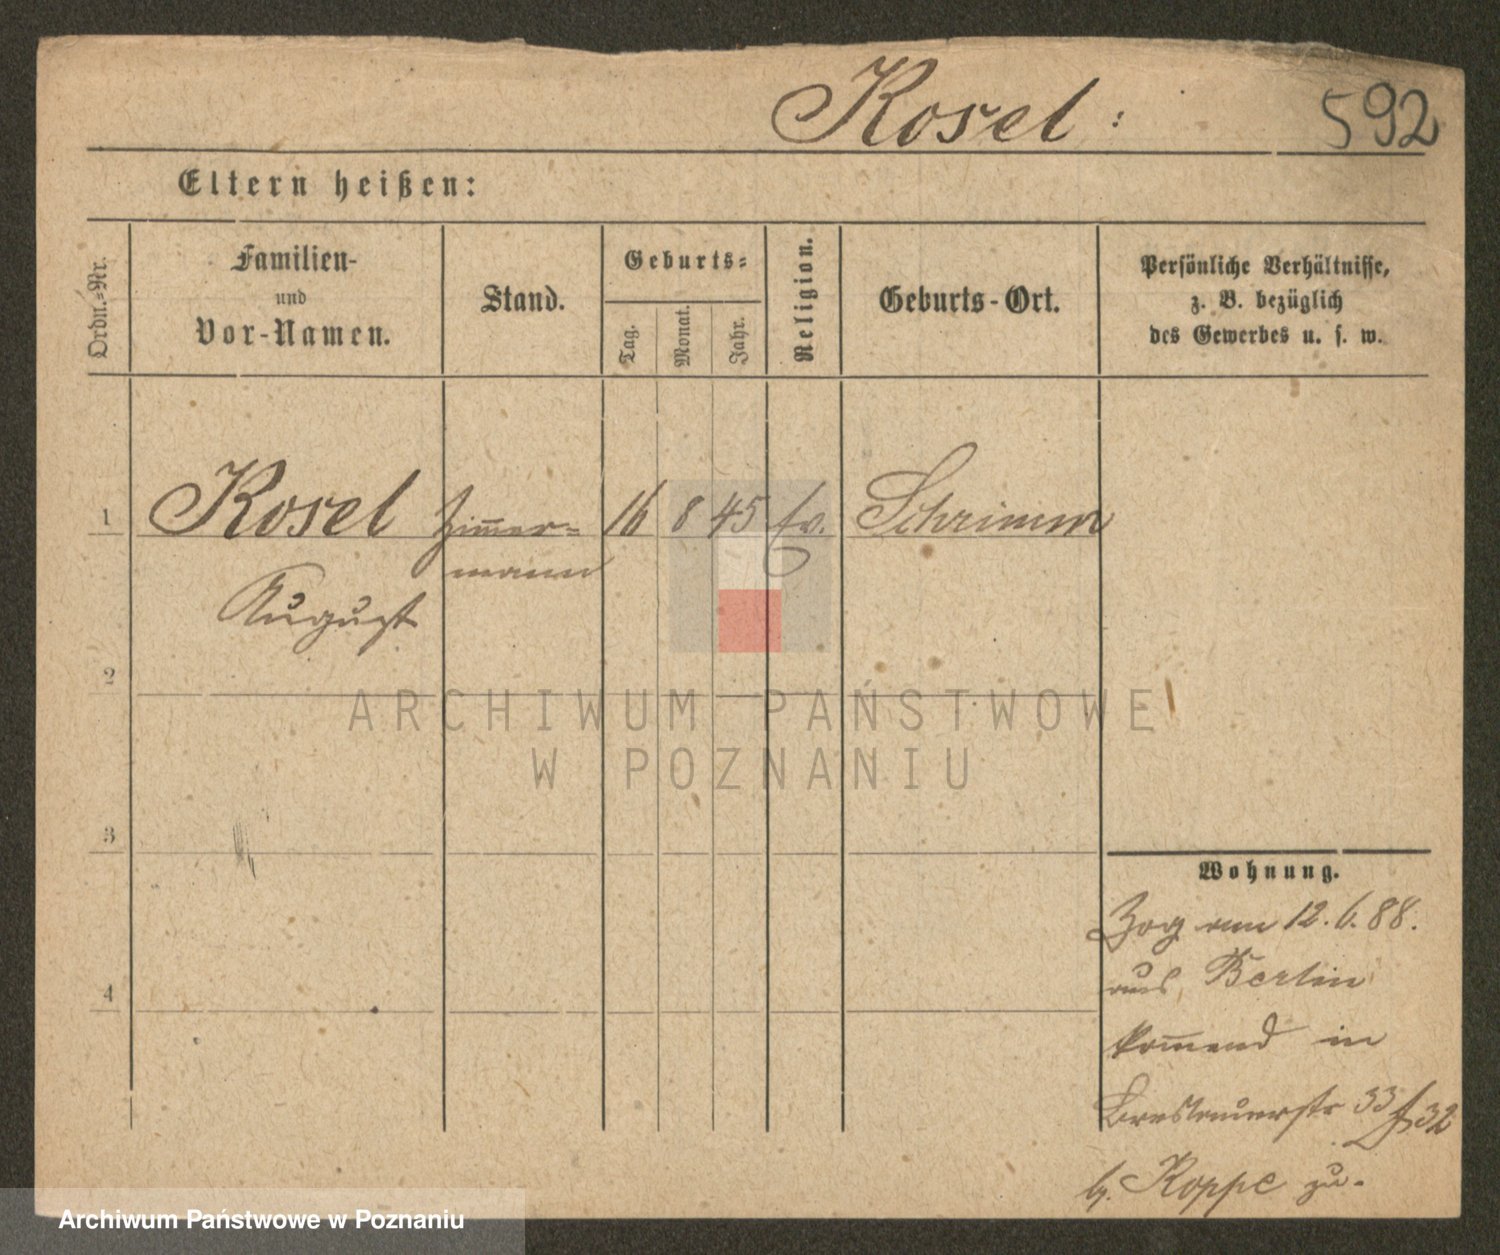 Kosel :
592
Eltern heißen:
Ordn.-Nr.
Familien-
und
Vor-Namen.
Stand.
Geburts-
Tag.
Monat.
Jahr.
Religion.
Geburts-Ort.
Persönliche Verhältnisse,
z. B. bezüglich
des Gewerbes u. s. w.
1 Kosel Zim̅er= 16 8 45 Ev. Schrimm
mann
August
2
3
4
ARCHIWUM PAŃSTWOWE
W POZNANIU
Wohnung.
Zog am 12.6.88.
aus Berlin
kom̅end in
33 32
b. Koppe zu.
Archiwum Państwowe w Poznaniu